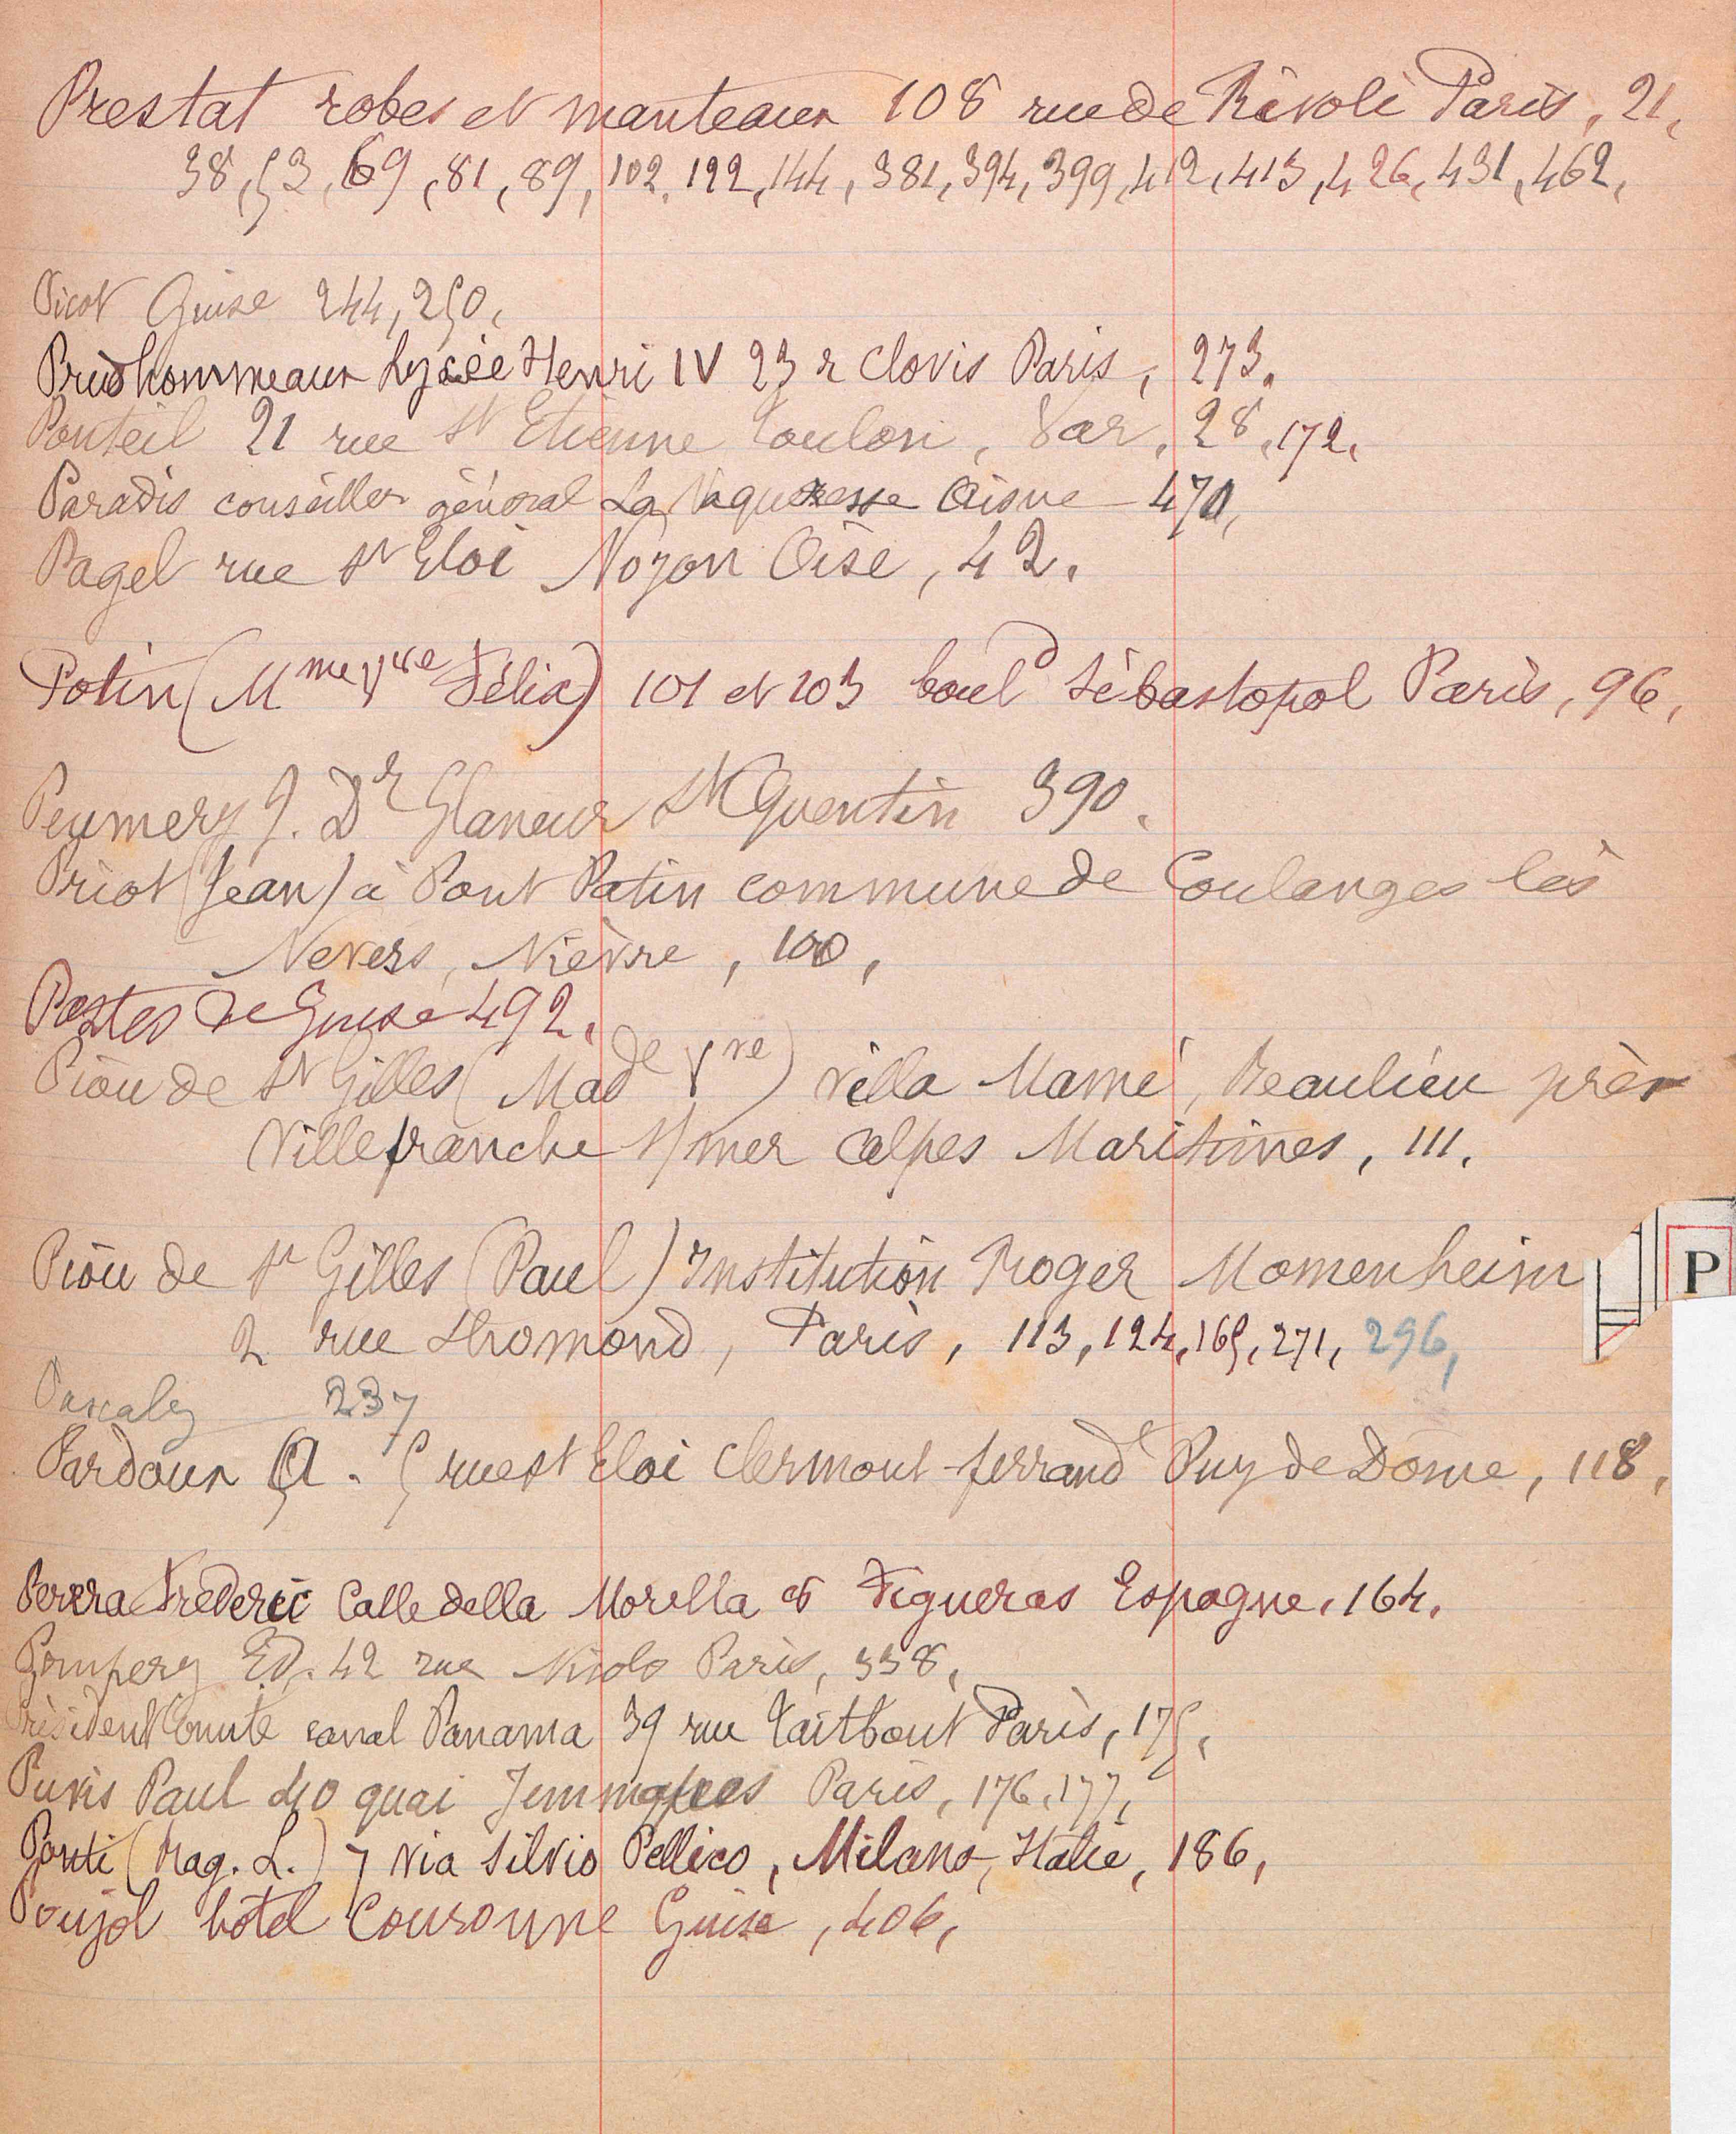 Prestat robes et manteaux 108 rue de Rivoli Paris, 21,
38, 53, 69, 81, 89, 102, 122, 144, 381, 394, 399, 412, 413, 426, 431, 462,
Picot Guise 244, 250,
Prudhommeaux Lycée Henri IV 23 r Clovis Paris, 273.
Ponteil 21 rue St Etienne Toulon, Var, 28, 172,
Paradis conseiller général La Vaqueresse Aisne 470,
Pagel rue St Eloi Noyon Oise, 42.
Potin (Mme Vve Félix) 101 et 103 bould Sébastopol Paris, 96,
Peumery J. Dr Glaneur St Quentin 390.
Priot (Jean) à Pont Patin commune de Coulanges lès
Nevers, Nièvre, 100,
Postes de Guise 492.
Piou de St Gilles (Made Vve) villa Mamé, Beaulieu près
Villefranche s/mer Alpes Maritimes, 111.
Piou de St Gilles (Paul) Institution Roger Momenheim
2 rue Lhomond, Paris, 113, 124, 165, 271, 296,
P
Pascaly 237
Pardoux A. 5 rue St Eloi Clermont-ferrand Puy de Dôme, 118,
Perera Frederic Calle della Morella Figueras Espagne, 164.
Pompery Ed. 42 rue Nicolo Paris, 338,
Président Comité canal Panama 39 rue Taitbout Paris, 175,
Puvis Paul 40 quai Jemmapes Paris, 176, 177,
Ponti (Rag. L.) 7 via Silvio Pellico, Milano, Italie, 186,
Poujol hôtel Couronne Guise, 406,